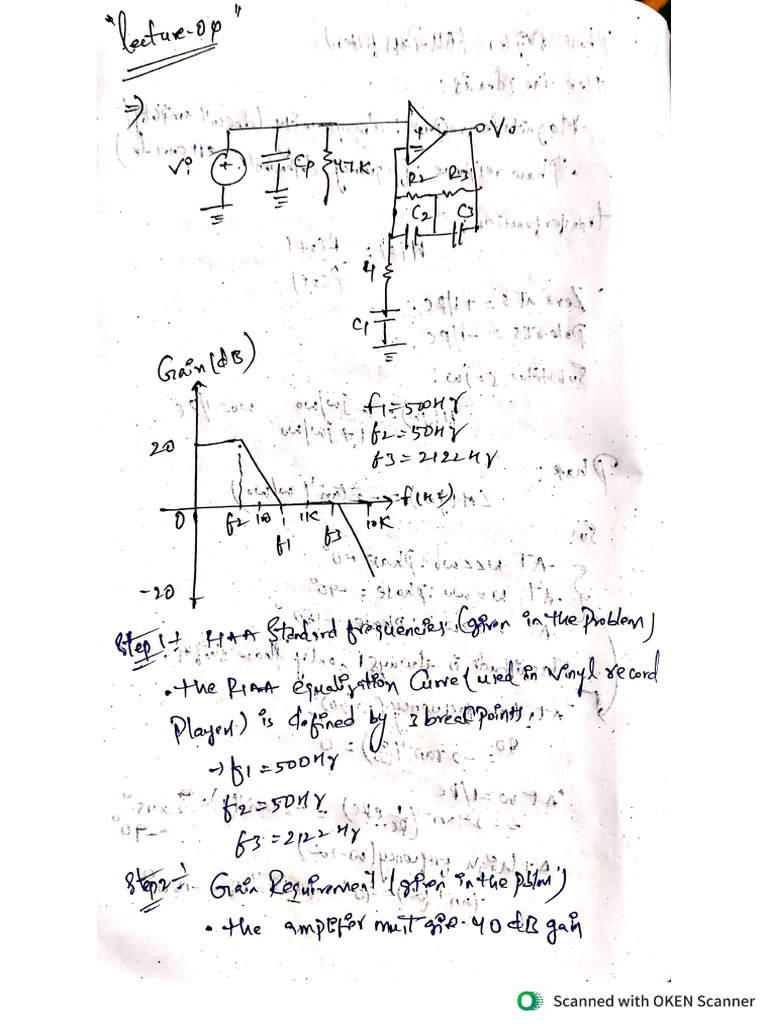 "Lecture-04"
=>
Vi
+
Cp
47K
+
=
Vo
R2
R3
C2
C3
C1
Gain(dB)
f1=500Hz
f2=50Hz
f3=2122Hz
20
0
f2
f1
1K
f3
10K
f(Hz)
-20
Step 1:- RIAA Standard frequencies (given in the Problem)
• the RIAA equalization Curve (used in vinyl record
Player) is defined by 3 break points.
→ f1=500Hz
f2=50Hz
f3=2122Hz
Step2:- Gain Requirement (given in the pblm)
• the amplifier must give 40dB gain
Scanned with OKEN Scanner